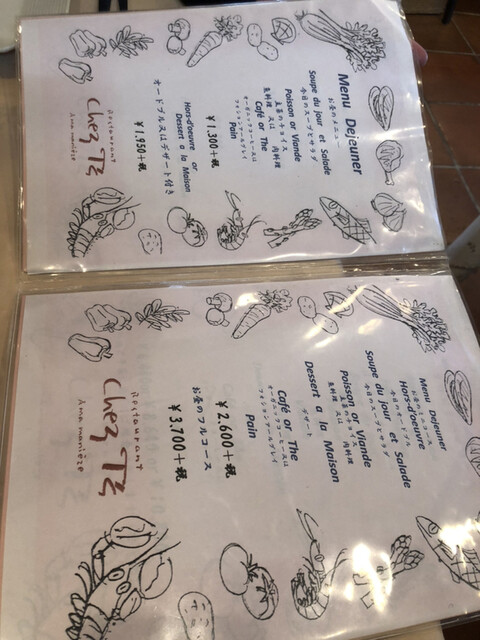 Menu Dejeuner
お昼のメニュー
Soupe du jour et Salade
今日のスープとサラダ
Poisson or Viande
主菜のチョイス
魚料理 又は 肉料理
Café or The
オーガニックコーヒー又は
フォションアールグレイ
Pain
¥1,300+税
Hors-d'oeuvre or
Dessert a la Maison
オードブル又はデザート付き
¥1,950+税
Restaurant
Chez
Ama manière
Menu Dejeuner
お昼のメニューコース
Hors-d'oeuvre
今日のオードブル
Soupe du jour et Salade
今日のスープとサラダ
Poisson or Viande
主菜のチョイス
魚料理 又は 肉料理
Dessert a la Maison
デザート
Café or The
オーガニックコーヒー又は
フォションアールグレイ
Pain
¥2,600+税
お昼のフルコース
¥3,700+税
Restaurant
Chez
Ama manière